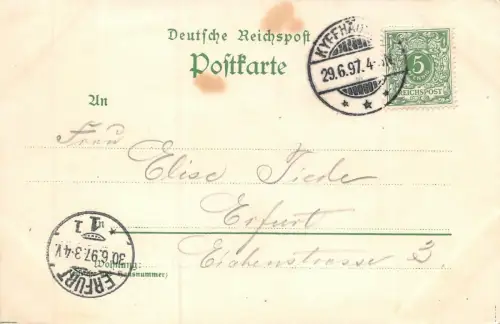 Deutsche Reichspost
Postkarte
KYFFHÄU
29.6.97. 4-
5
REICHSPOST
An
Frau
Elise Tiede
Erfurt
Eichenstrasse 3.
Wohnung:
Hausnummer)
ERFURT
1
30.6.97. 3-4 V.